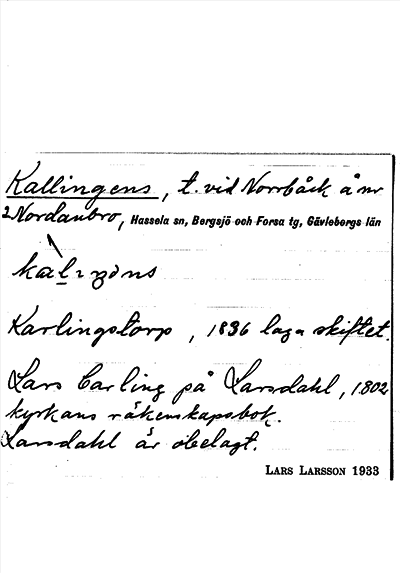 Kallingens, t. vid Norrbäck å nr
2 Nordanbro, Hassela sn, Bergsjö och Forsa tg, Gävleborgs län
Karlingstorp, 1836 laga skiftet.
Lars Carling på Larsdahl, 1802
kyrkans räkenskapsbok.
Larsdahl är obelagt.
LARS LARSSON 1933